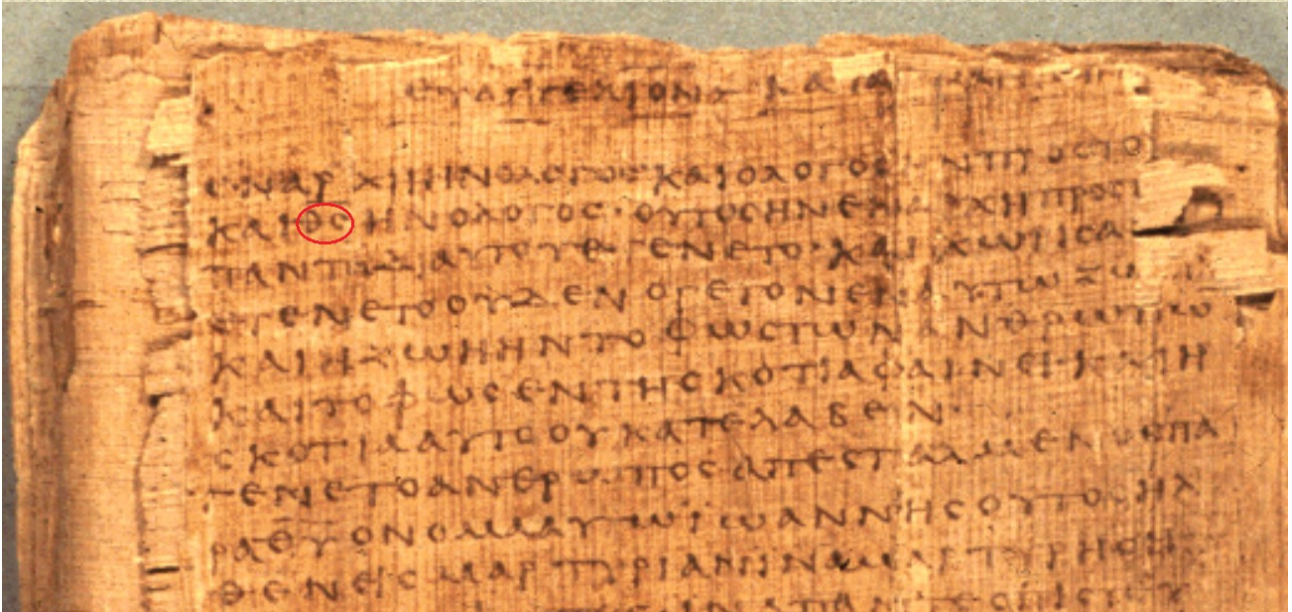 ευαγγελιον κατα
εναρχηηνολογοσκαιολογοσ
καιθσηνολογοσ·ουτοσηνεναρχηπροσ
πανταδιαυτουεγενετο·καιχωρισα
εγενετοουδενογεγονενεναυτωζω
καιηζωηηντοφωστωνανθρωπω
καιτοφωσεντησκοτιαφαινεικαιη
σκοτιααυτοουκατελαβεν
γενετοανθρωποσαπεσταλμενοσπα
ραθυονομααυτωϊωαννησουτοσηλ
θενεισμαρτυριανιναμαρτυρηση